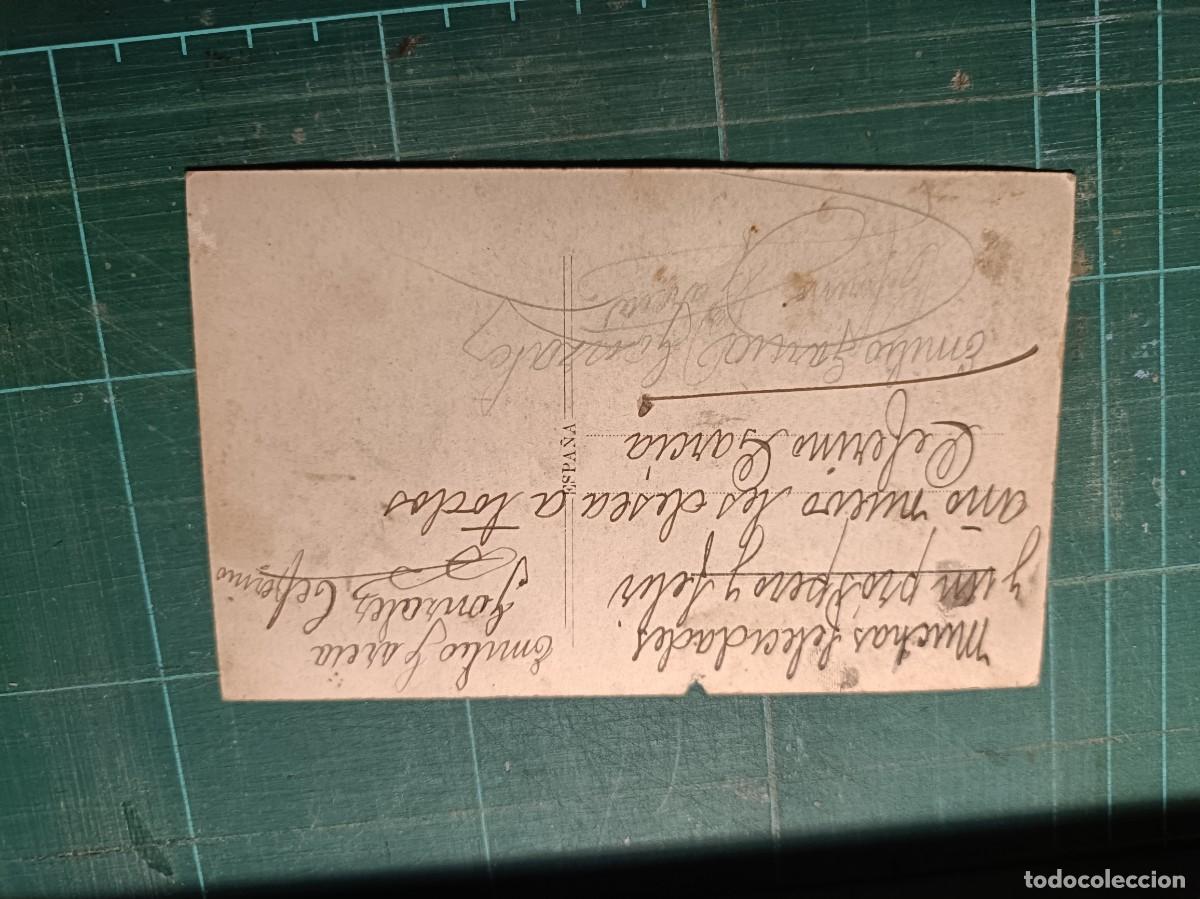 Muchas felecidades
y un prospero y feliz
año nuevo les desea a todos
Ceferino Garcia
Emilio Garcia Gonzalez
Ceferino
Garcia
Emilio Garcia
Gonzalez Ceferino
ESPAÑA
todocoleccion